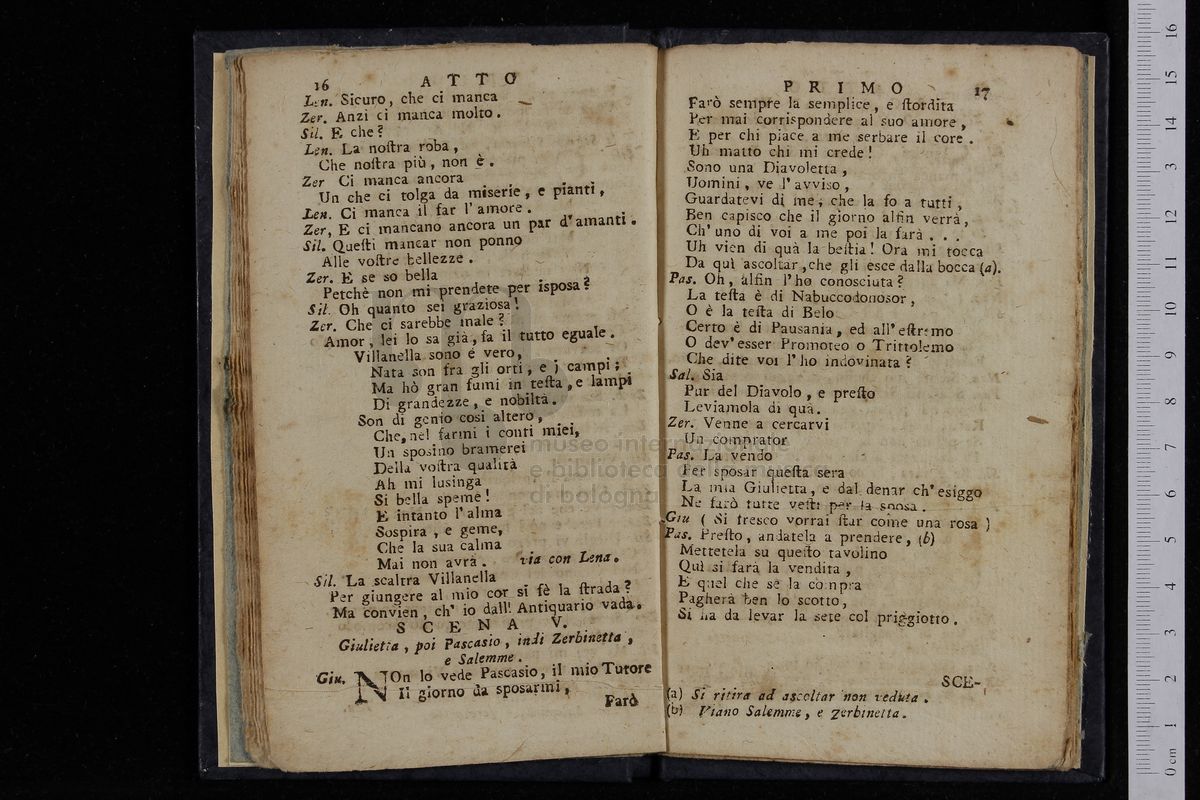 16 ATTO
Len. Sicuro, che ci manca
Zer. Anzi ci manca molto.
Sil. E che?
Len. La noſtra roba,
Che noſtra più, non è.
Zer Ci manca ancora
Un che ci tolga da miserie, e pianti,
Len. Ci manca il far l'amore.
Zer, E ci mancano ancora un par d'amanti.
Sil. Queſti mancar non ponno
Alle voſtre bellezze.
Zer. E se so bella
Perchè non mi prendete per isposa?
Sil. Oh quanto sei graziosa!
Zer. Che ci sarebbe male?
Amor, lei lo sa già, fa il tutto eguale.
Villanella sono è vero,
Nata son fra gli orti, e i campi;
Ma hò gran fumi in teſta, e lampi
Di grandezze, e nobiltà.
Son di genio così altero,
Che, nel farmi i conti miei,
Un sposino bramerei
Della voſtra qualità
Ah mi lusinga
Si bella speme!
E intanto l'alma
Sospira, e geme,
Che la sua calma
Mai non avrà. via con Lena.
Sil. La scaltra Villanella
Per giungere al mio cor si fè la ſtrada?
Ma convien, ch' io dall' Antiquario vada.
SCENA V.
Giulietta, poi Pascasio, indi Zerbinetta,
e Salemme.
Giu. NOn lo vede Pascasio, il mio Tutore
Il giorno da sposarmi,
Farò
PRIMO 17
Farò sempre la semplice, e ſtordita
Per mai corrispondere al suo amore,
E per chi piace a me serbare il core.
Uh matto chi mi crede!
Sono una Diavoletta,
Uomini, ve l'avviso,
Guardatevi di me, che la fo a tutti,
Ben capisco che il giorno alfin verrà,
Ch' uno di voi a me poi la farà...
Uh vien di quà la beſtia! Ora mi tocca
Da quì ascoltar, che gli esce dalla bocca (a).
Pas. Oh, alfin l'ho conosciuta?
La teſta è di Nabuccodonosor,
O è la teſta di Belo
Certo è di Pausania, ed all'eſtremo
O dev'esser Promoteo o Trittolemo
Che dite voi l'ho indovinata?
Sal. Sia
Pur del Diavolo, e preſto
Leviamola di quà.
Zer. Venne a cercarvi
Un comprator
Pas. La vendo
Per sposar queſta sera
La mia Giulietta, e dal denar ch'esiggo
Ne farò tutte veſti per la sposa.
Giu ( Si fresco vorrai ſtar come una rosa )
Pas. Preſto, andatela a prendere, (b)
Mettetela su queſto tavolino
Quì si farà la vendita,
E quel che se la compra
Pagherà ben lo scotto,
Si ha da levar la sete col priggiotto.
SCE-
(a) Si ritira ad ascoltar non veduta.
(b) Viano Salemme, e Zerbinetta.
museo internazionale
e biblioteca della musica
di bologna
0 cm 1 2 3 4 5 6 7 8 9 10 11 12 13 14 15 16